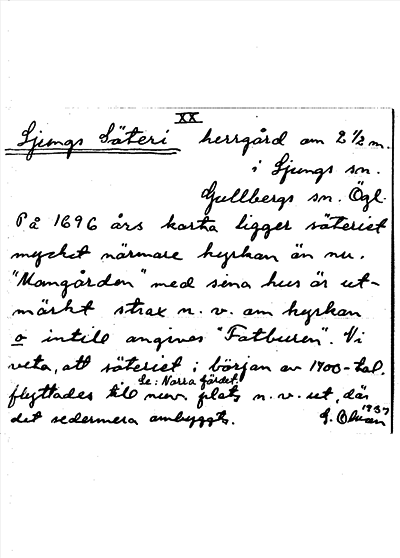 XX
Ljungs Säteri herrgård om 2 1/2 m.
i Ljungs sn.
Gullbergs sn. Ögl.
På 1696 års karta ligger säteriet
mycket närmare kyrkan än nu.
"Mangården" med sina hus är ut-
märkt strax n. v. om kyrkan
o intill angives "Fatburen". Vi
veta, att säteriet i början av 1700-tal.
Se: Norra gärdet.
flyttades till nuv. plats n. v. ut, där
det sedermera ombyggts. 1937